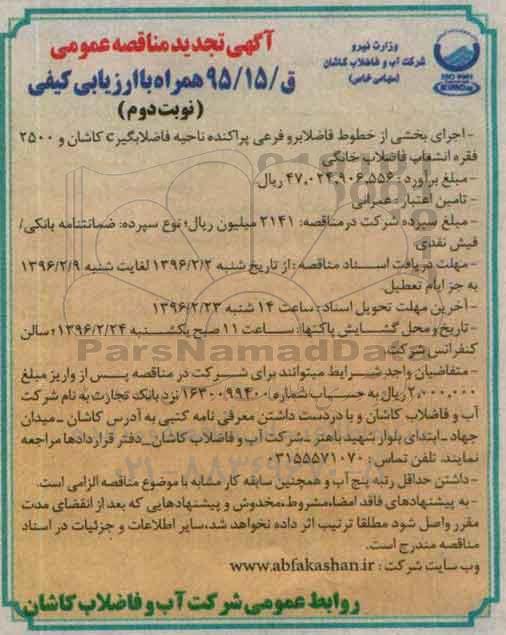 وزارت نیرو
شرکت آب و فاضلاب کاشان
(سهامی خاص)
ISO 9001
آگهی تجدید مناقصه عمومی
ق/۹۵/۱۵ همراه با ارزیابی کیفی
(نوبت دوم)
- اجرای بخشی از خطوط فاضلابرو فرعی پراکنده ناحیه فاضلابگیر C کاشان و ۲۵۰۰
فقره انشعاب فاضلاب خانگی
- مبلغ برآورد: ۴۷,۰۲۴,۹۰۶,۵۵۶ ریال
- تامین اعتبار: عمرانی
- مبلغ سپرده شرکت در مناقصه: ۲۱۴۱ میلیون ریال؛ نوع سپرده: ضمانتنامه بانکی/
فیش نقدی
- مهلت دریافت اسناد مناقصه: از تاریخ شنبه ۱۳۹۶/۲/۲ لغایت شنبه ۱۳۹۶/۲/۹
به جز ایام تعطیل.
- آخرین مهلت تحویل اسناد: ساعت ۱۴ شنبه ۱۳۹۶/۲/۲۳
- تاریخ و محل گشایش پاکتها: ساعت ۱۱ صبح یکشنبه ۱۳۹۶/۲/۲۴؛ سالن
کنفرانس شرکت.
- متقاضیان واجد شرایط میتوانند برای شرکت در مناقصه پس از واریز مبلغ
۲,۰۰۰,۰۰۰ ریال به حساب شماره ۱۶۳۰۰۹۹۴۰۰ نزد بانک تجارت به نام شرکت
آب و فاضلاب کاشان و با در دست داشتن معرفی نامه کتبی به آدرس کاشان ـ میدان
جهاد ـ ابتدای بلوار شهید باهنر ـ شرکت آب و فاضلاب کاشان ـ دفتر قراردادها مراجعه
نمایند. تلفن تماس: ۰۳۱۵۵۵۷۱۰۷۰
- داشتن حداقل رتبه پنج آب و همچنین سابقه کار مشابه با موضوع مناقصه الزامی است.
- به پیشنهادهای فاقد امضاء، مشروط، مخدوش و پیشنهادهایی که بعد از انقضای مدت
مقرر واصل شود مطلقا ترتیب اثر داده نخواهد شد، سایر اطلاعات و جزئیات در اسناد
مناقصه مندرج است.
وب سایت شرکت: www.abfakashan.ir
روابط عمومی شرکت آب و فاضلاب کاشان
ParsNamadData